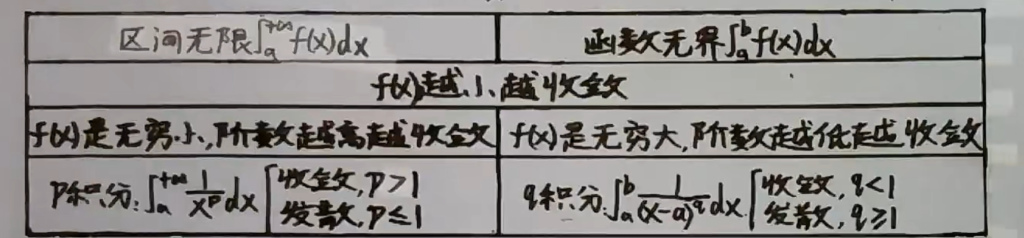 区间无限∫ₐ⁺∞ f(x)dx 函数无界∫ₐᵇ f(x)dx
f(x)越小,越收敛
f(x)是无穷小,阶数越高越收敛 f(x)是无穷大,阶数越低越收敛
p积分:∫ₐ⁺∞ 1/xᵖ dx { 收敛, p>1 q积分:∫ₐᵇ 1/(x-a)^q dx { 收敛, q<1
发散, p≤1 发散, q≥1